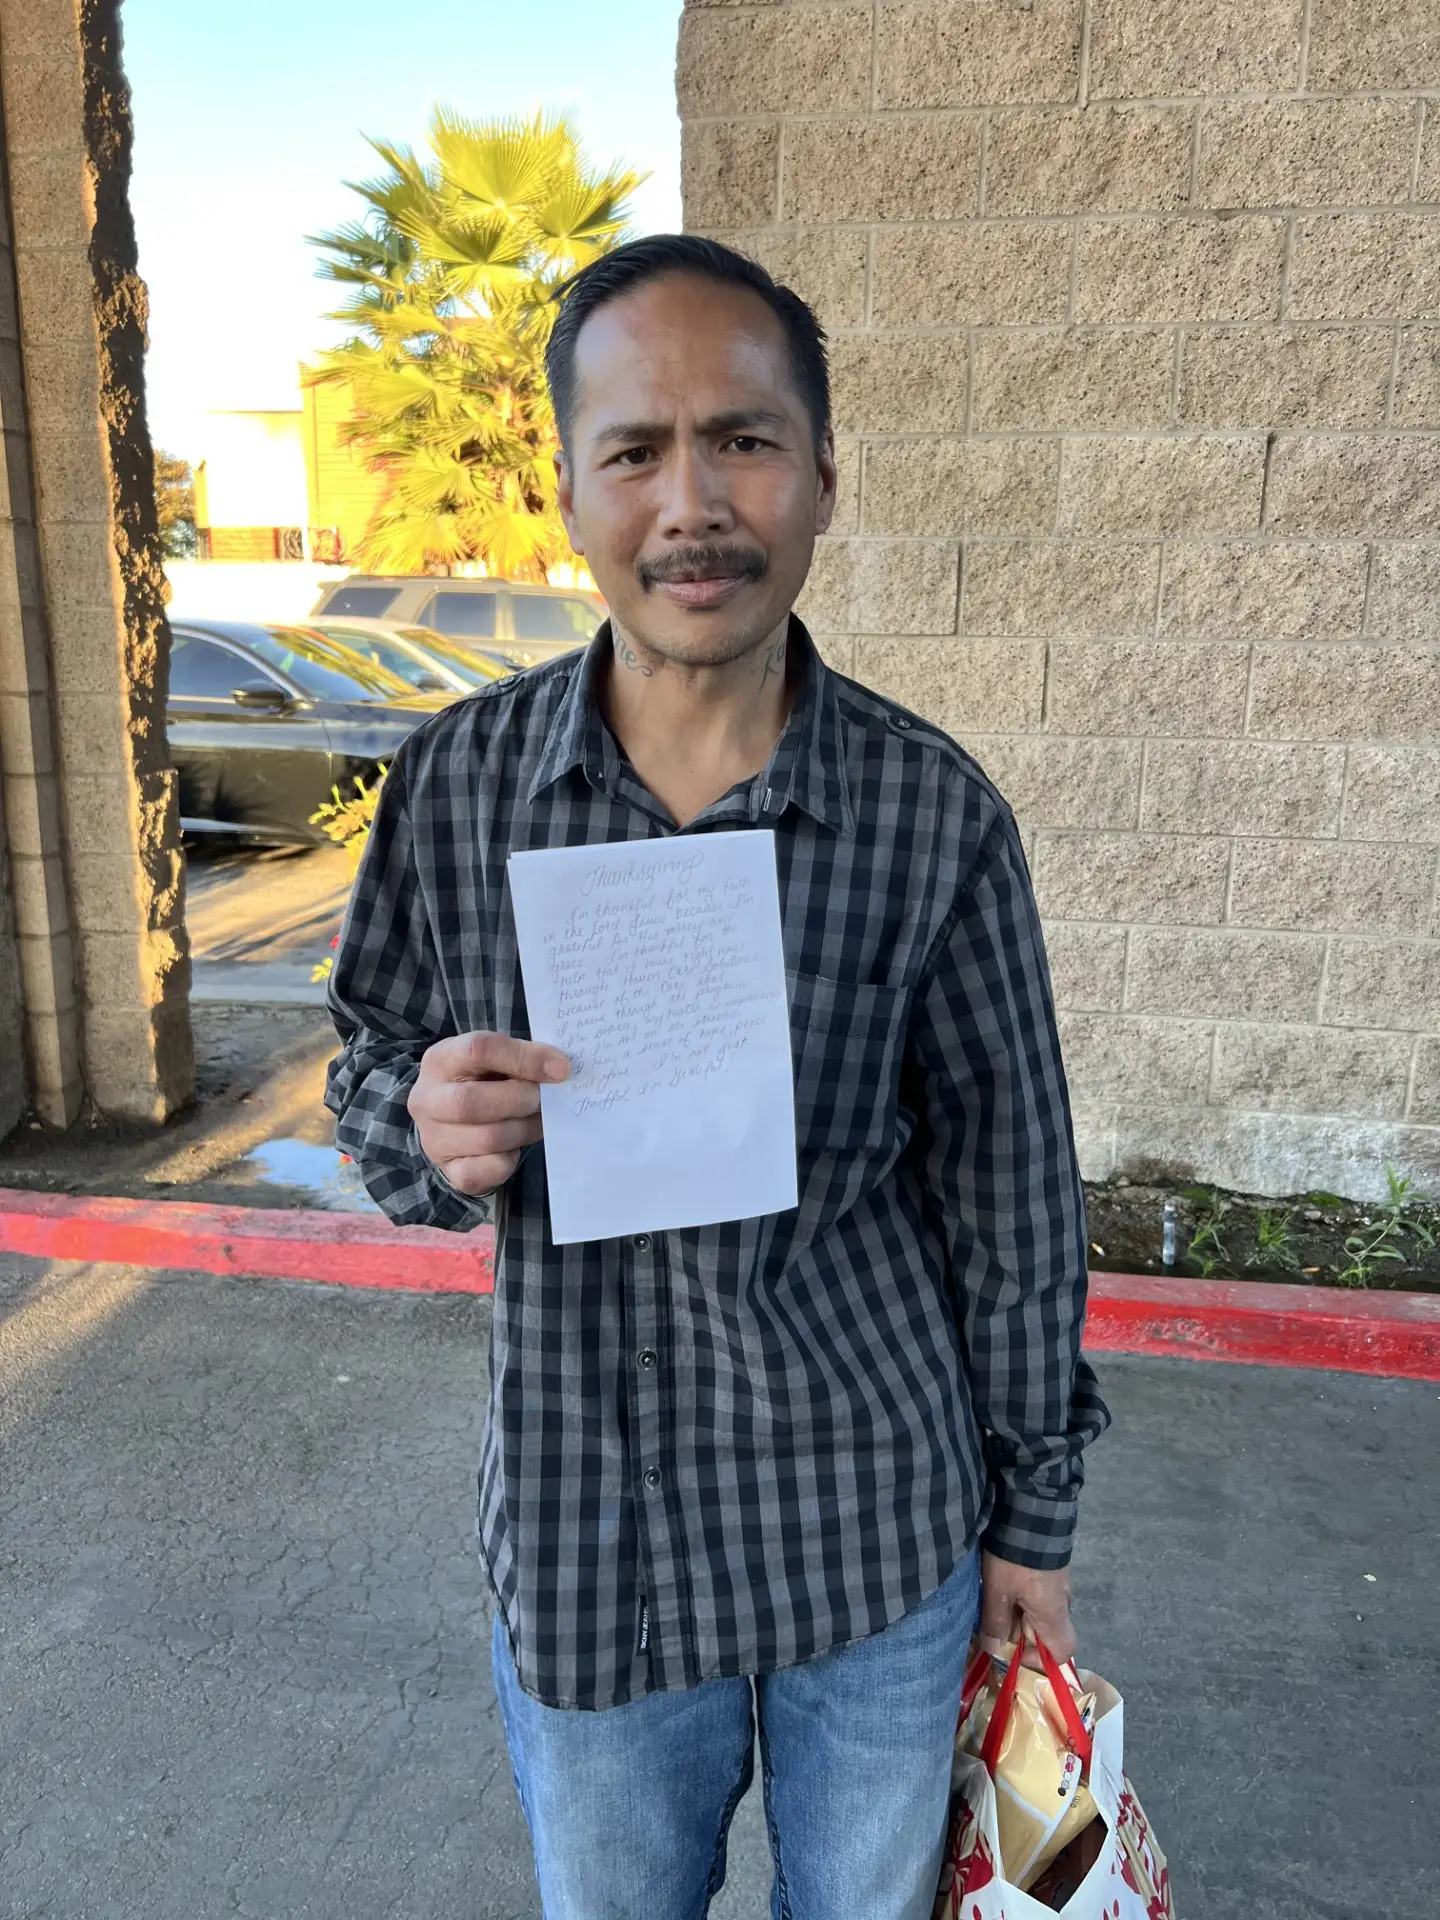 Thanksgiving
I'm thankful for my faith
in the Lord Jesus because I'm
grateful for His mercy and
grace. I'm thankful for the
help that I have right now
through Haven Care Solutions
because of the care that
I have through the program
I'm sober, my health is improving
I'm not on the streets.
I have a sense of hope, peace
and love I'm not just
Thankful I'm Grateful!